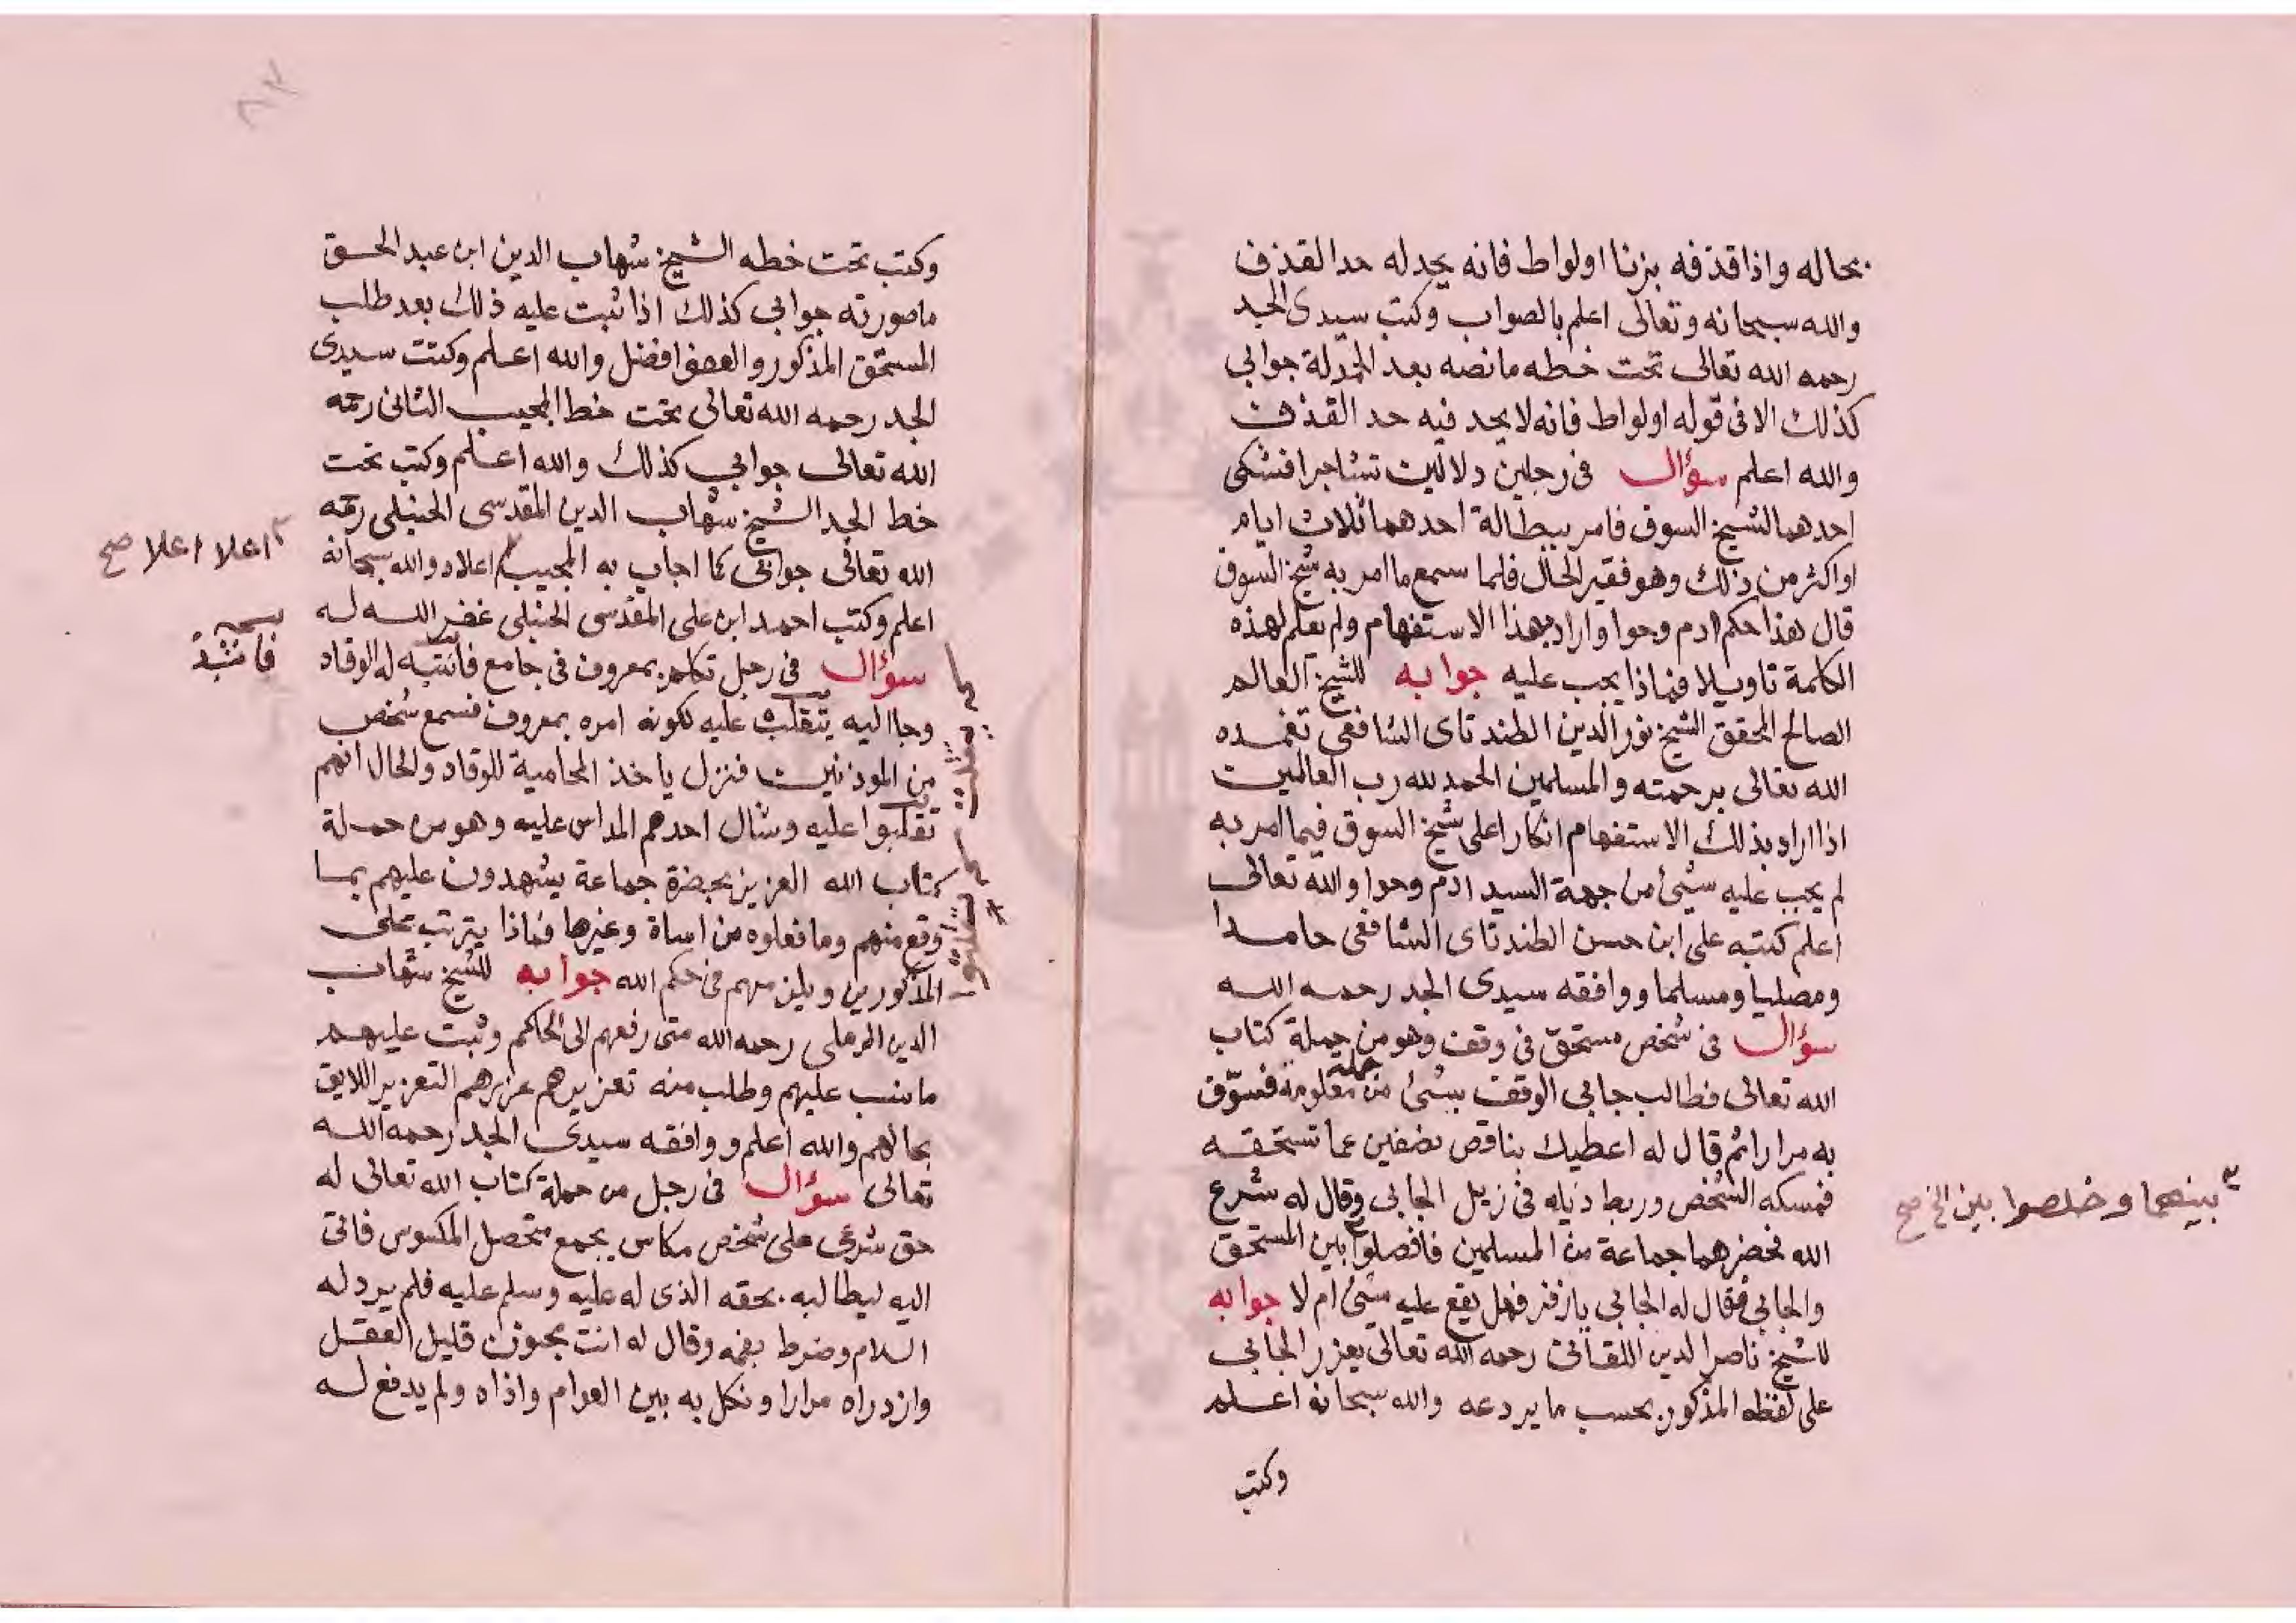 بحاله واذا قذفه بزنا اولواط فانه يحد له حد القذف
والله سبحانه وتعالى اعلم بالصواب وكتب سيدى الجد
رحمه الله تعالى تحت خطه ما نصه بعد الحمدلة جوابي
كذلك الا فى قوله اولواط فانه لا يحد فيه حد القذف
والله اعلم سؤال فى رجلين دلالين تشاجرا فشكى
احدهما لشيخ السوق فامر ببطالة احدهما ثلاث ايام
او اكثر من ذلك وهو فقير الحال فلما سمع ما امر به شيخ السوق
قال هذا حكم ادم وحوا واراد بهذا الاستفهام ولم يعلم لهذه
الكلمة تاويلا فماذا يجب عليه جوابه للشيخ العالم
الصالح المحقق الشيخ نور الدين الطندتاى الشافعى تغمده
الله تعالى برحمته والمسلمين الحمد لله رب العالمين
اذا اراد بذلك الاستفهام انكارا على شيخ السوق فيما امر به
لم يجب عليه شيئ من جهة السيد ادم وحوا والله تعالى
اعلم كتبه على ابن حسن الطندتاى الشافعى حامدا
ومصليا ومسلما ووافقه سيدى الجد رحمه الله
سؤال فى شخص مستحق فى وقف وهو من حملة كتاب
الله تعالى فطالب جابي الوقف بشئ من جملة معلومة فسوّف
به مرارا ثم قال له اعطيك بناقص نصفين عما تستحقه
فمسكه الشخص وربط ذيله فى زيل الجابى وقال له شرع
الله فحضرهما جماعة من المسلمين فافصلوا بين المستحق
والجابى فقال له الجابى يازفر فهل يقع عليه شئ ام لا جوابه
للشيخ ناصر الدين اللقانى رحمه الله تعالى يعزر الجابى
على لفظه المذكور بحسب ما يردعه والله سبحانه اعلم
وكتب
بينهما وخلصوا بين الخ صح
وكتب تحت خطه الشيخ شهاب الدين ابن عبد الحق
ما صورته جوابي كذلك اذا ثبت عليه ذلك بعد طلب
المستحق المذكور والعفو افضل والله اعلم وكتب سيدى
الجد رحمه الله تعالى تحت خط المجيب الثانى رحمه
الله تعالى جوابي كذلك والله اعلم وكتب تحت
خط الجد الشيخ شهاب الدين المقدسى الحنبلى رحمه
الله تعالى جوابى كما اجاب به المجيب اعلاه والله سبحانه
اعلم وكتب احمد ابن على المقدسى الحنبلى غفر الله له
سؤال فى رجل تكلم بمعروف فى جامع فانتبه له الوقاد
وجا اليه يتقلب عليه لكونه امره بمعروف فسمع شخص
من الموذنين فنزل ياخذ المحامية للوقاد والحال انهم
تقلبوا عليه وشال احدهم المداس عليه وهو من حملة
كتاب الله العزيز بحضرة جماعة يشهدون عليهم بما
وقع منهم وما فعلوه من اساة وغيرها فماذا يترتب على
المذكورين ويلزمهم فى حكم الله جوابه للشيخ شهاب
الدين الرملى رحمه الله متى رفعهم الى الحاكم وثبت عليهم
ما نسب عليهم وطلب منه تعزيرهم عزرهم التعزير اللايق
بحالهم والله اعلم ووافقه سيدى الجد رحمه الله
تعالى سؤال فى رجل من حملة كتاب الله تعالى له
حق شرعى على شخص مكاس يجمع متحصل المكوس فاتى
اليه ليطالبه بحقه الذى له عليه وسلم عليه فلم يرد له
السلام وضرط بفمه وقال له انت مجنون قليل العقل
وازدراه مرارا ونكل به بين العوام واذاه ولم يدفع له
اعلا اعلا صح